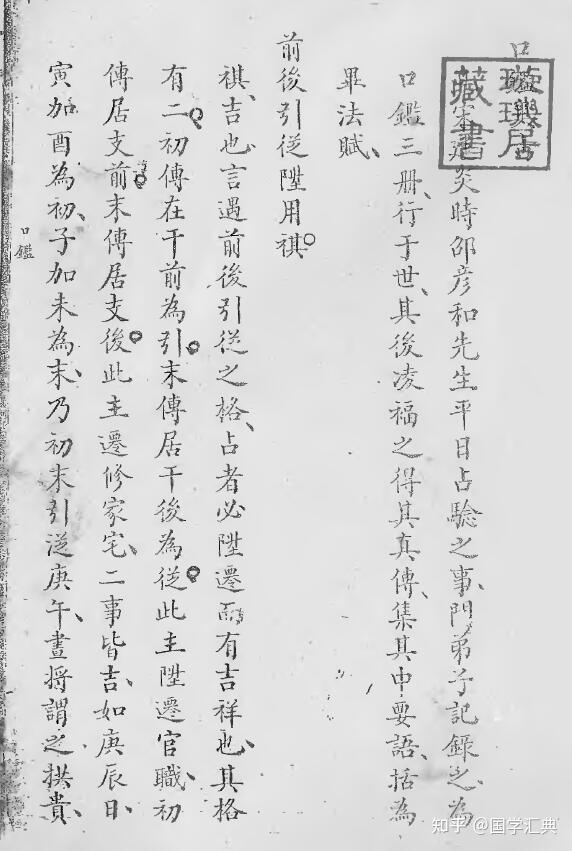 口鑑
宋建炎時邵彦和先生平日占驗之事、門弟子記錄之、為
口鑑三册、行于世、其後凌福之得其真傳、集其中要語、括為
畢法賦、
前後引從陞用祺
祺、吉也、言遇前後引從之格、占者必陞遷而有吉祥也、其格
有二初傳在干前為引末傳居干後為從此主陞遷官職、初
傳居支前末傳居支後此主遷修家宅、二事皆吉、如庚辰日、
寅加酉為初、子加未為末、乃初末引從庚午、晝將謂之拱貴、
口鑑
藏書
居
知乎 @国学汇典